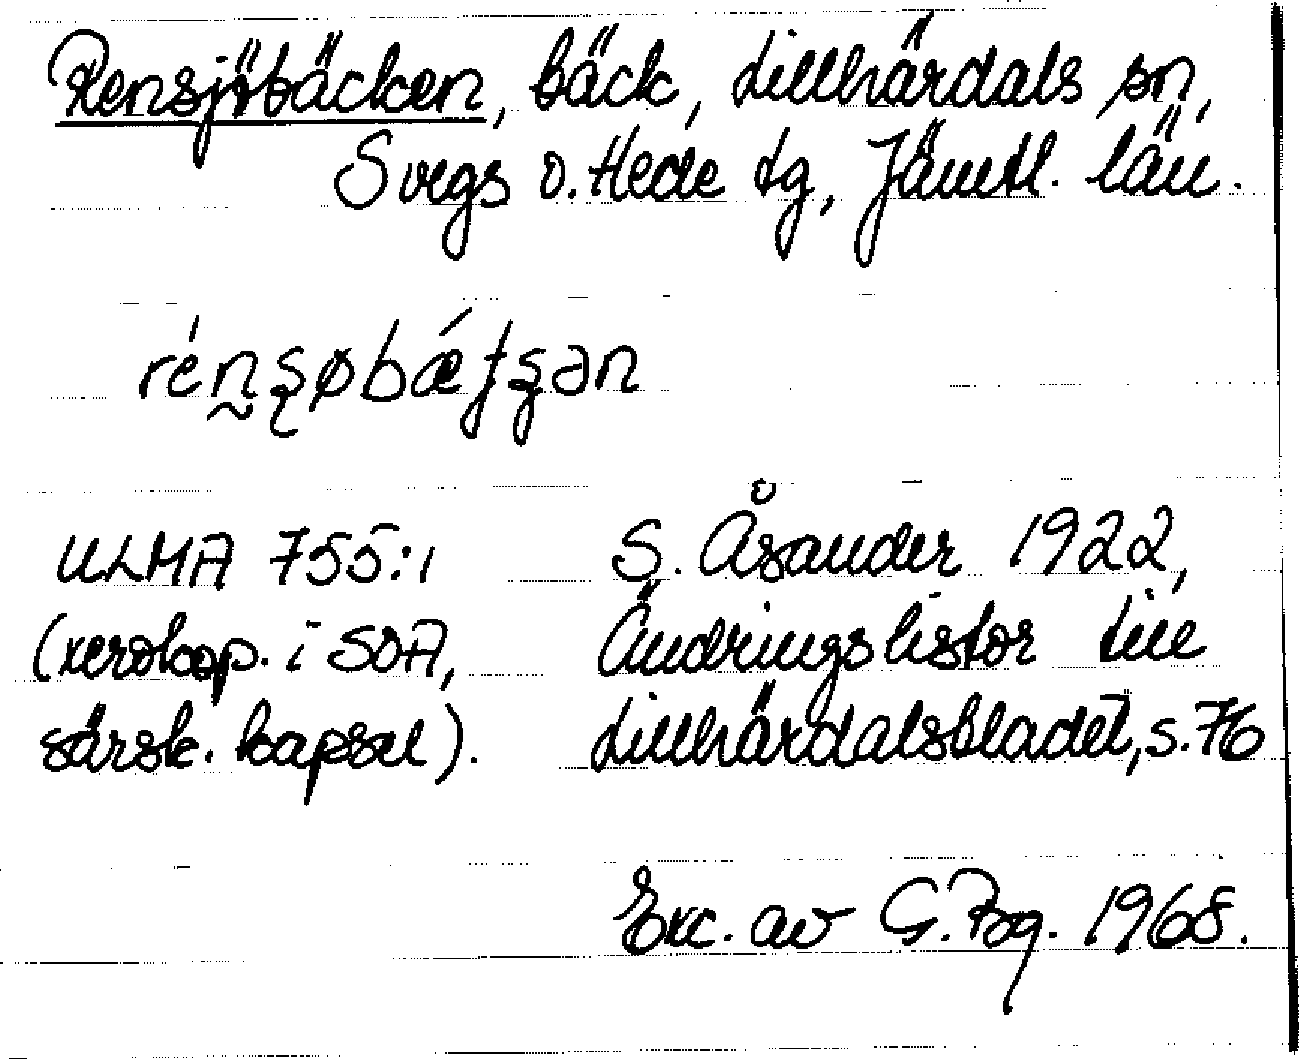 Rensjöbäcken, bäck, Lillhärdals sn,
Svegs o. Hede tg, Jämtl. län.
rénʂøbǽʄʂən
ULMA 755:1
(xerokop. i SOA,
särsk. kapsel).
S. Åsander 1922,
Ändringslistor till
Lillhärdalsbladet, s. 76
Exc. av G. 1968.